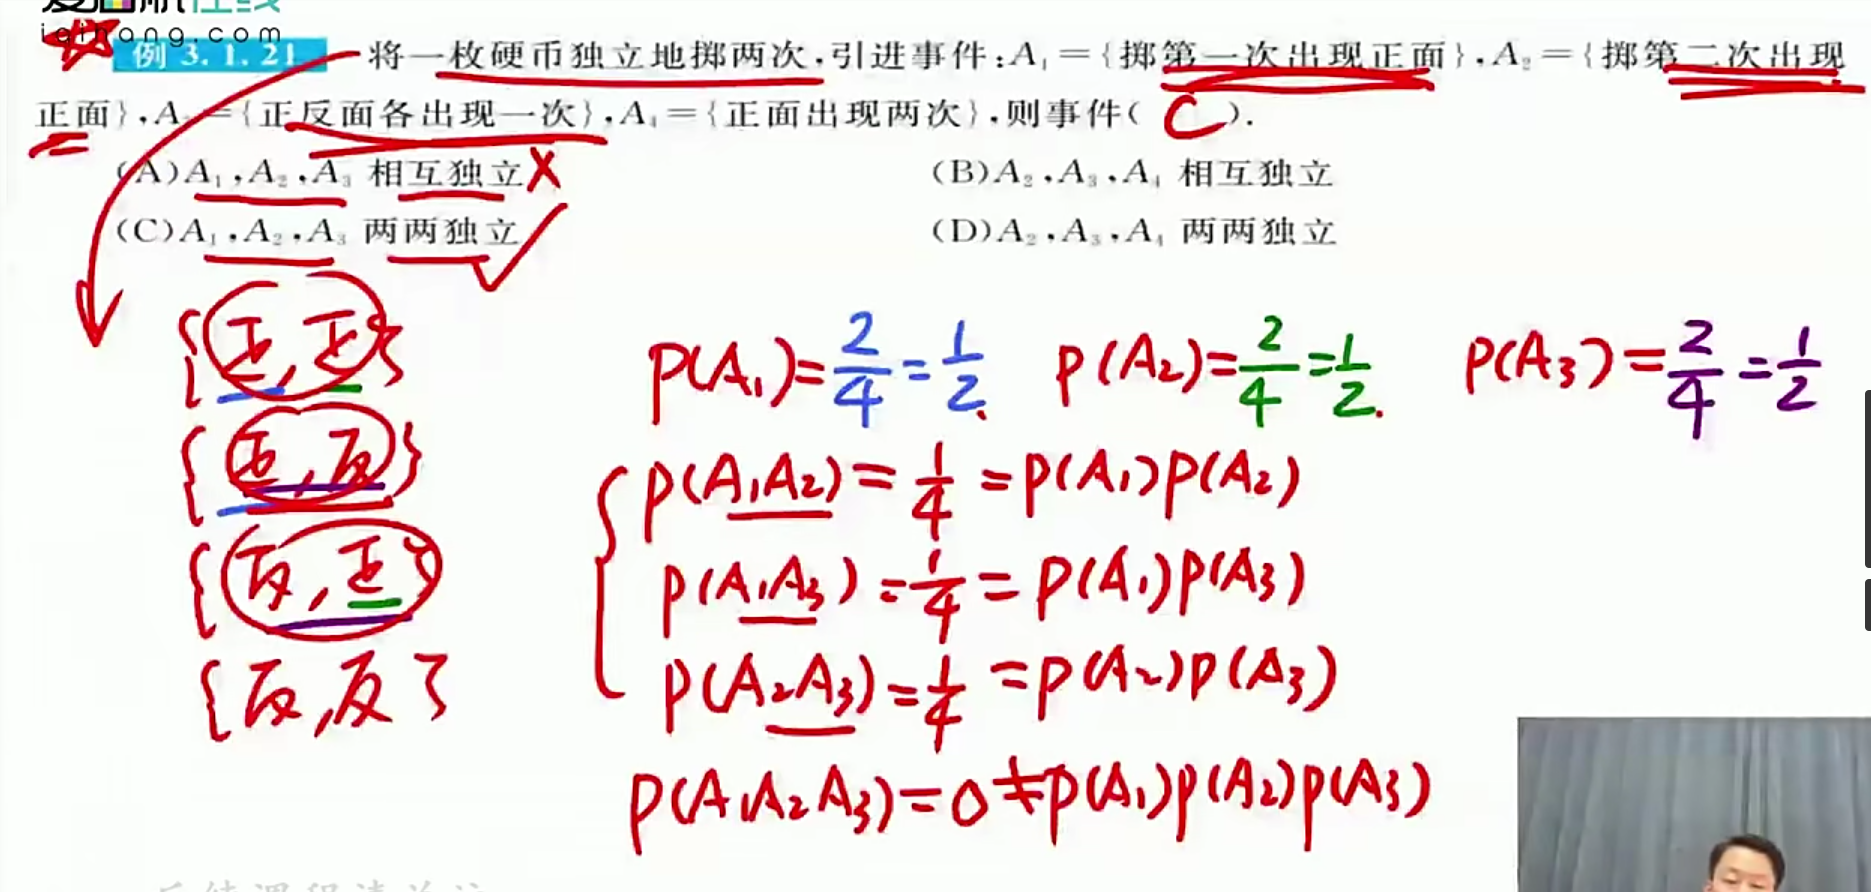 iqihang.com
例 3.1.21 将一枚硬币独立地掷两次,引进事件:A₁={掷第一次出现正面},A₂={掷第二次出现
正面},A ={正反面各出现一次},A₄={正面出现两次},则事件( C ).
(A)A₁,A₂,A₃ 相互独立 X (B)A₂,A₃,A₄ 相互独立
(C)A₁,A₂,A₃ 两两独立 ✓ (D)A₂,A₃,A₄ 两两独立
{正,正}
{正,反}
{反,正}
{反,反}
P(A₁)=2/4=1/2. P(A₂)=2/4=1/2. P(A₃)=2/4=1/2
P(A₁A₂)=1/4=P(A₁)P(A₂)
P(A₁A₃)=1/4=P(A₁)P(A₃)
P(A₂A₃)=1/4=P(A₂)P(A₃)
P(A₁A₂A₃)=0≠P(A₁)P(A₂)P(A₃)